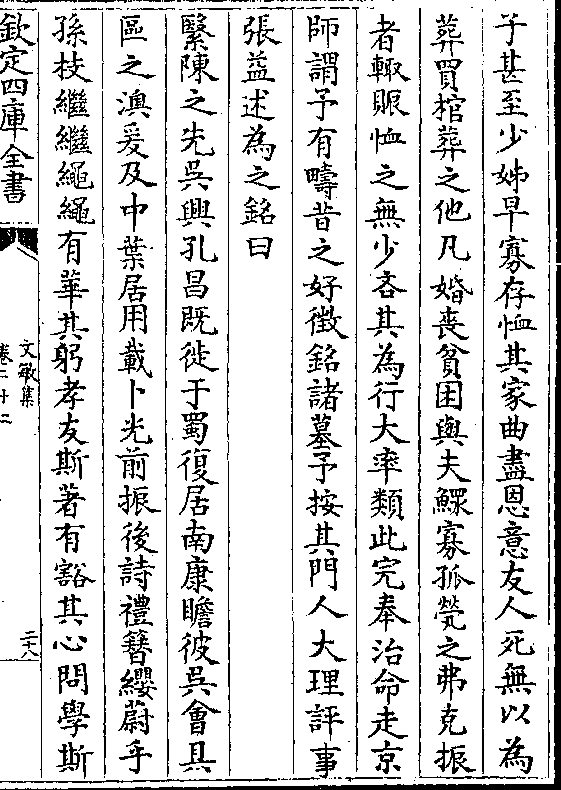 子甚至少姊早寡存恤其家曲盡恩意友人死無以為
葬買棺葬之他凡婚喪貧困與夫鰥寡孤煢之弗克振
者輙賑恤之無少吝其為行大率類此完奉治命走京
師謂予有疇昔之好徵銘諸墓予按其門人大理評事
張益述為之銘曰
繄陳之先吳興孔昌既徙于蜀復居南康瞻彼吳會具
區之澳爰及中葉居用載卜光前振後詩禮簪纓蔚乎
孫枝繼繼繩繩有華其躬孝友斯著有豁其心問學斯
欽定四庫全書
文敏集
卷二十二
二十八